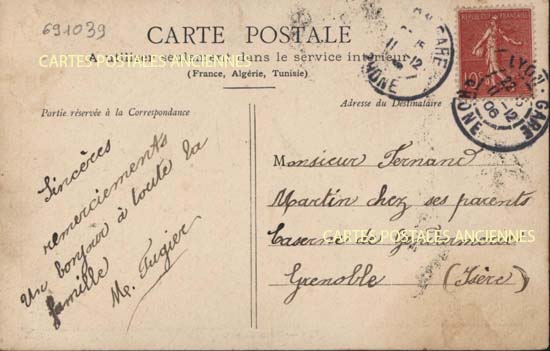 691039
CARTE POSTALE
A utiliser seulement dans le service intérieur
(France, Algérie, Tunisie)
CARTES POSTALES ANCIENNES
Partie réservée à la Correspondance
Adresse du Destinataire
REPUBLIQUE FRANÇAISE
10
LYON-GARE
RHONE
11-12
06
GARE
RHONE
11 12
Sincères
remerciements
Un bonjour à toute la
famille
M. Fugier
Monsieur Fernand
Martin chez ses parents
CARTES POSTALES ANCIENNES
Caserne de Gendarmerie
Grenoble (Isère)